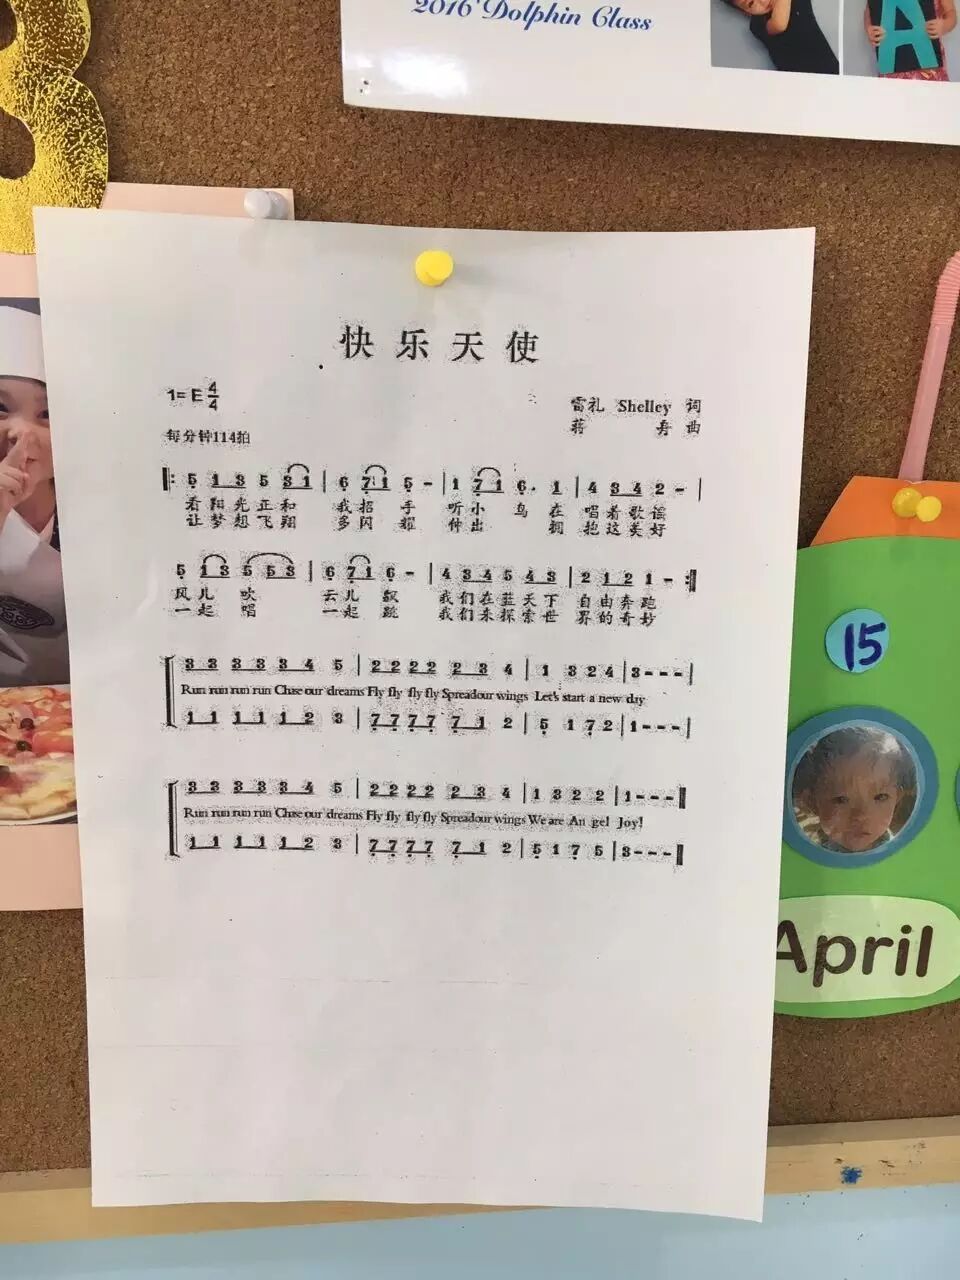 2016 Dolphin Class
快乐天使
1=E 4/4
雷礼 Shelley 词
蒋 曲
每分钟114拍
5 1 3 5 3 1 | 6 7 1 5 - | 1 7 1 6. 1 | 4 3 4 2 - |
看阳光正和 我招 手 听小 鸟在 唱着歌谣
让梦想飞翔 多闪 耀 伸出 拥 抱这美好
5 1 3 5 5 3 | 6 7 1 6 - | 4 3 4 5 4 3 | 2 1 2 1 - :||
风儿 吹 云儿 飘 我们在蓝天下 自由奔跑
一起 唱 一起 跳 我们来探索世 界的奇妙
3 3 3 3 3 4 5 | 2 2 2 2 2 3 4 | 1 3 2 4 | 3 - - - |
Run run run run Chase our dreams Fly fly fly fly Spread our wings Let's start a new day
1 1 1 1 1 2 3 | 7 7 7 7 7 1 2 | 5 1 7 2 | 1 - - - |
3 3 3 3 3 4 5 | 2 2 2 2 2 3 4 | 1 3 2 2 | 1 - - - ||
Run run run run Chase our dreams Fly fly fly fly Spread our wings We are An gel Joy!
1 1 1 1 1 2 3 | 7 7 7 7 7 1 2 | 5 1 7 5 | 3 - - - ||
15
April
A